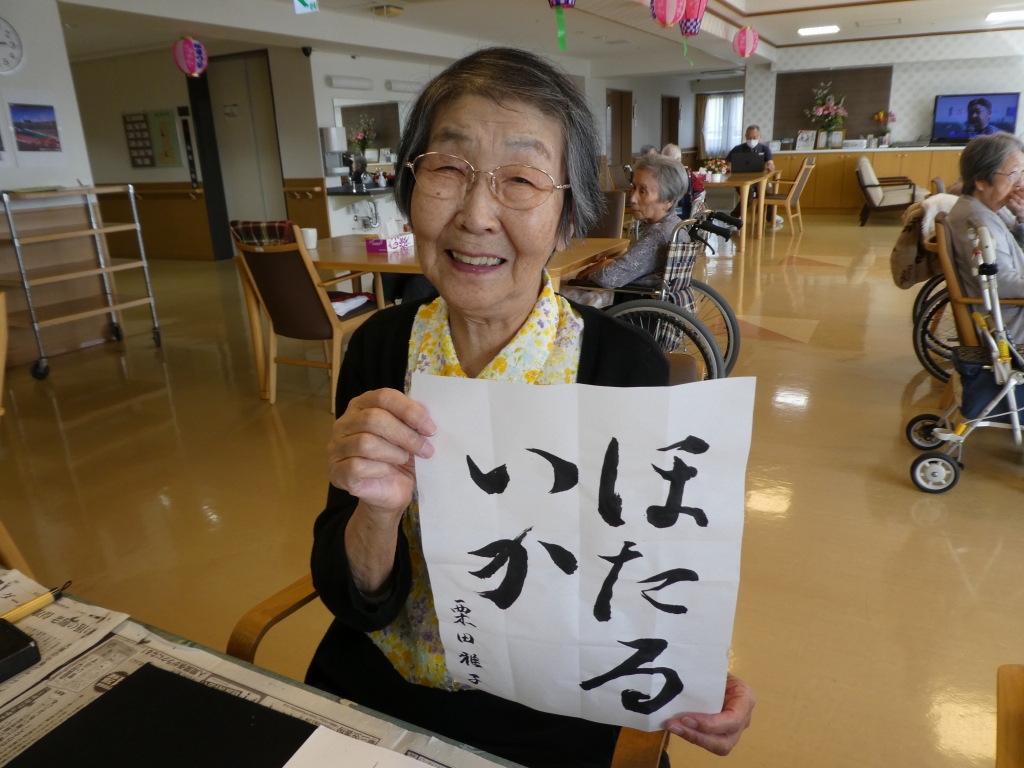 ほたる
いか
栗田雅子